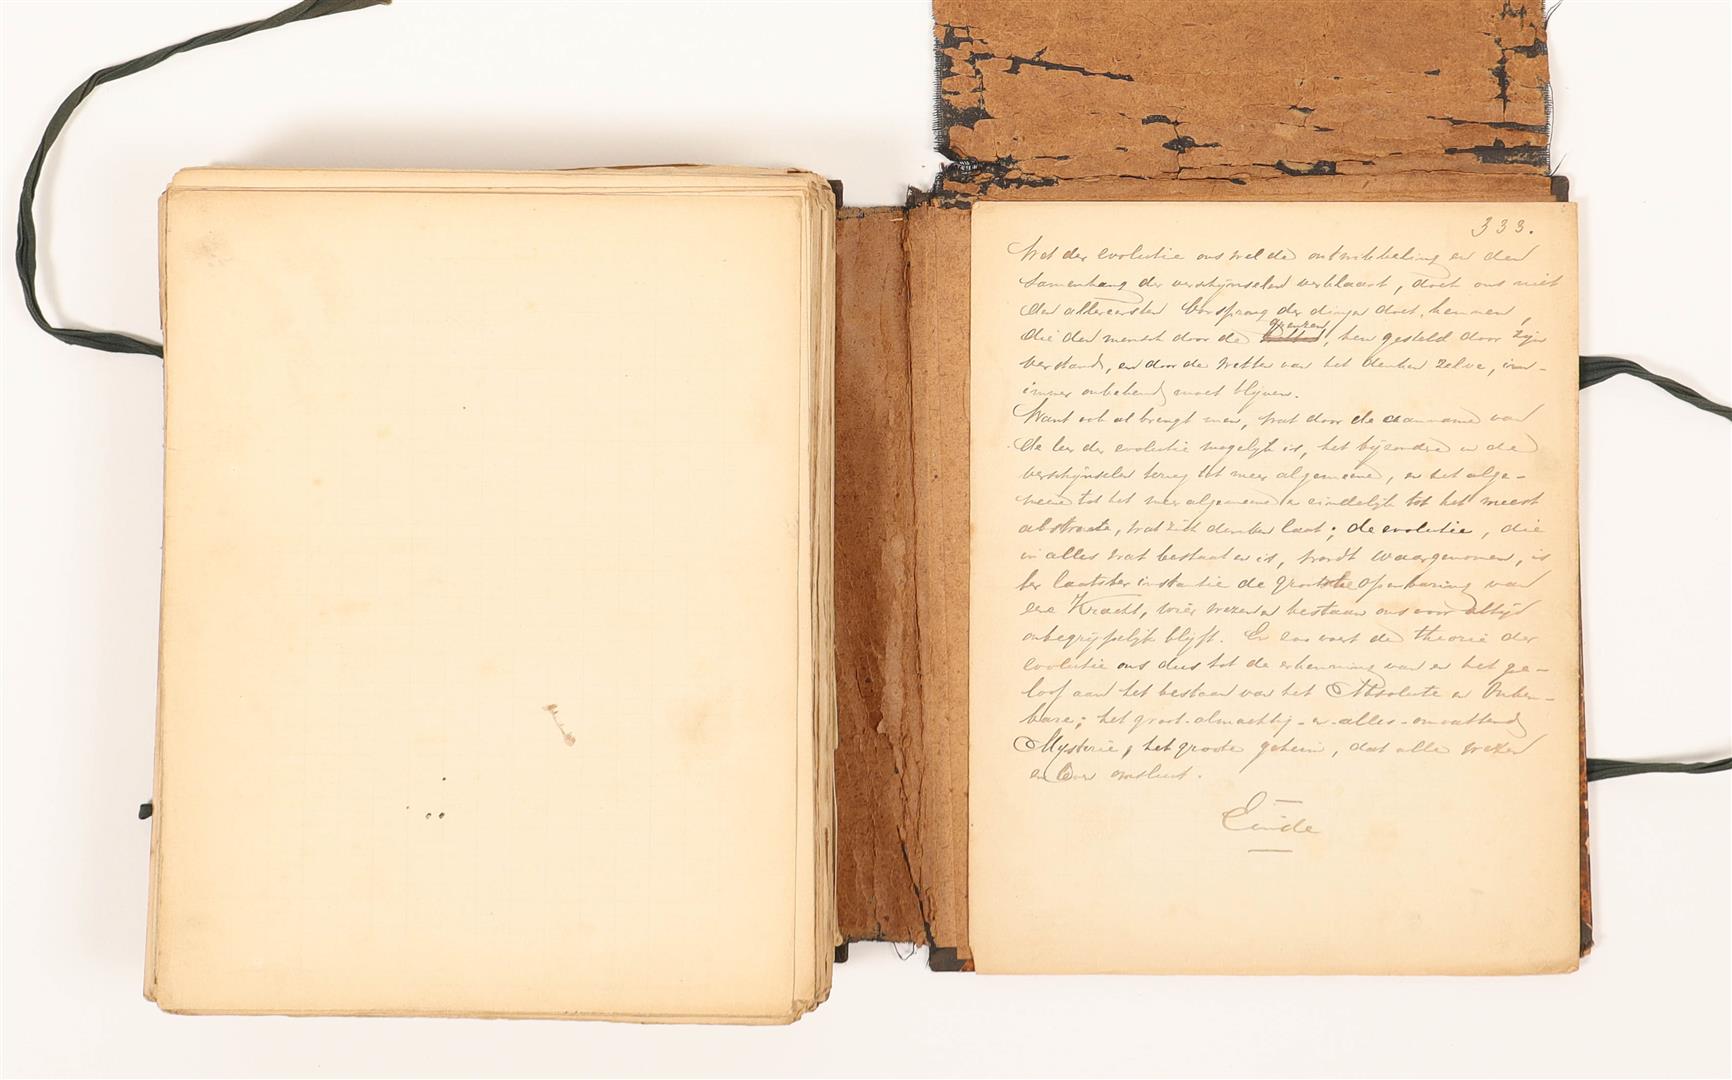 333.
Wat der evolutie ons wel de ontwikkeling en den
samenhang der verschijnselen verklaart, doch ons niet
den allereersten oorsprong der dingen doet kennen,
die den mensch door de grenzen, hem gesteld door zijn
verstand, en door de wetten van het denken zelve, voor
immer onbekend moet blijven.
Want ook al brengt men, wat door de aanname van
de leer der evolutie mogelijk is, het bijzondere in de
verschijnselen terug tot meer algemeene, en het alge-
meene tot het meer algemeene en eindelijk tot het meest
abstracte, wat zich denken laat; de evolutie, die
in alles wat bestaat en is, wordt waargenomen, is
ter laatster instantie de grootste openbaring van
eene Kracht, wier wezen en bestaan ons voor altijd
onbegrijpelijk blijft. En zoo voert de theorie der
evolutie ons dus tot de erkenning van en het ge-
loof aan het bestaan van het Absolute en Onken-
bare; het groot-almachtig-en-alles-omvattend
Mysterie, het groote geheim, dat alle wezen
en omsluit.
Einde